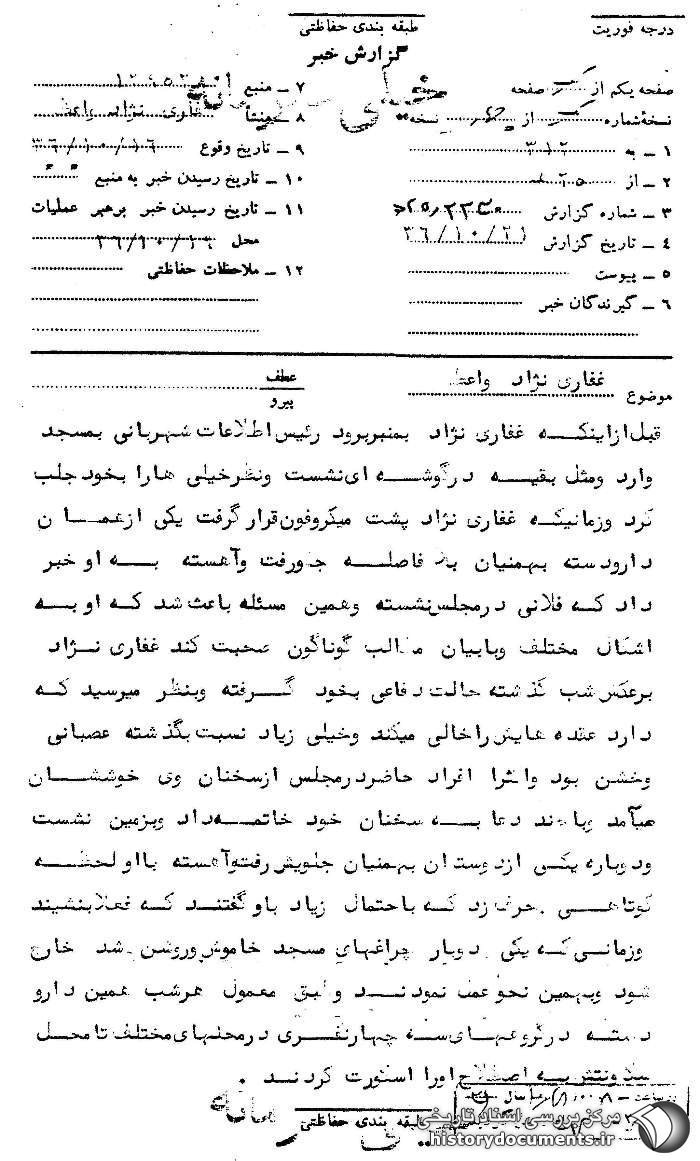 درجه فوریت
طبقه بندی حفاظتی
گزارش خبر
صفحه یکم از صفحه
نسخه شماره از نسخه
۱ – به ۳۱۲
۲ – از
۳ – شماره گزارش
۴ – تاریخ گزارش ۳۶/۱۰/۲۱
۵ – پیوست
۶ – گیرندگان خبر
۷ – منبع
۸ – منشأ غفاری نژاد واعظ
۹ – تاریخ وقوع ۳۶/۱۰/۱۶
۱۰ – تاریخ رسیدن خبر به منبع
۱۱ – تاریخ رسیدن خبر برهبر عملیات
محل
۱۲ – ملاحظات حفاظتی
موضوع غفاری نژاد واعظ
عطف
پیرو
قبل از اینکه غفاری نژاد بمنبر برود رئیس اطلاعات شهربانی بمسجد
وارد ومثل بقیه در گوشه ای نشست ونظر خیلی ها را بخود جلب
کرد وزمانیکه غفاری نژاد پشت میکروفون قرار گرفت یکی از همان
دارو دسته بهمنیان بلا فاصله جلو رفت وآهسته به او خبر
داد که فلانی در مجلس نشسته وهمین مسئله باعث شد که او به
اشکال مختلف وبابیان مطالب گوناگون صحبت کند غفاری نژاد
برعکس شب گذشته حالت دفاعی بخود گرفته وبنظر میرسید که
دارد عقده هایش را خالی میکند وخیلی زیاد نسبت بگذشته عصبانی
وخشن بود واکثرا افراد حاضر در مجلس از سخنان وی خوششان
میآمد وبا چند دعا به سخنان خود خاتمه داد وبزمین نشست
ودوباره یکی از دوستان بهمنیان جلویش رفته وآهسته با او لحظه
کوتاهی حرف زد که باحتمال زیاد باو گفتند که فعلا بنشیند
وزمانی که یکی دوبار چراغهای مسجد خاموش وروشن شد خارج
شود وبهمین نحو عمل نمودند وطبق معمول هر شب همین دارو
دسته در گروههای سه چهار نفری در محلهای مختلف تا محل
سکونتش به اصطلاح اورا اسکورت کردند .
طبقه بندی حفاظتی
مرکز بررسی اسناد تاریخی
historydocuments.ir